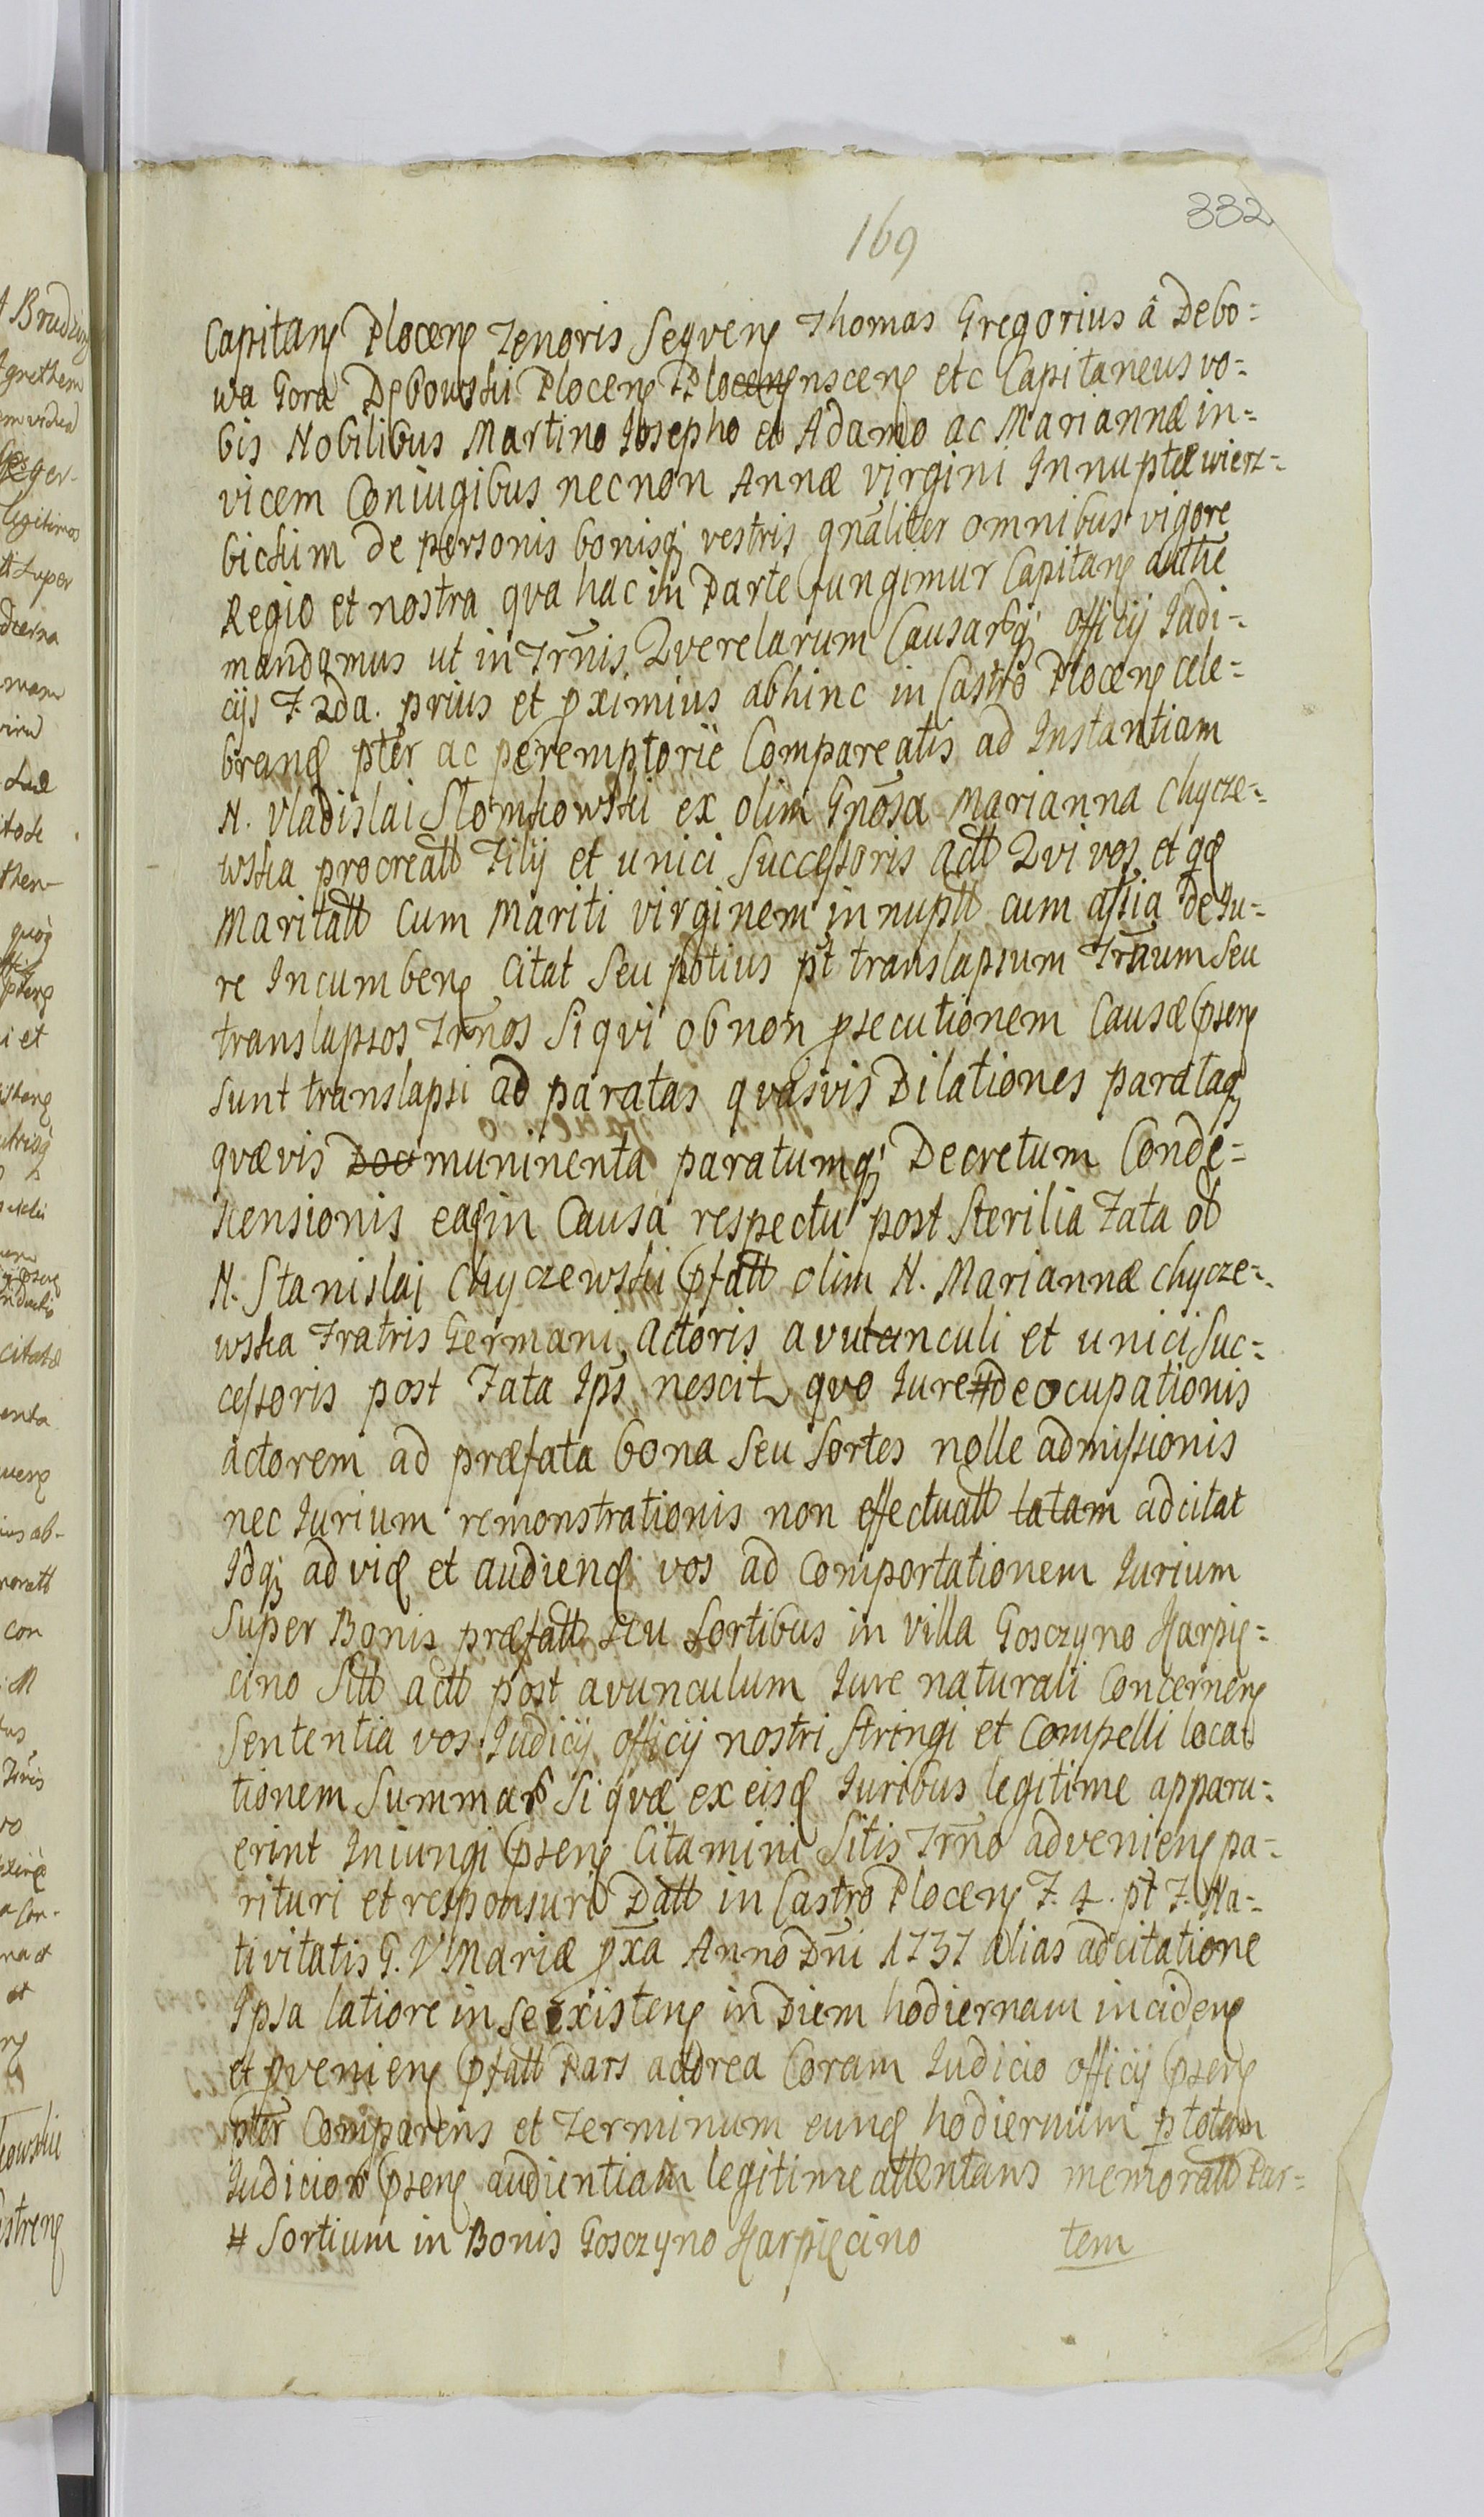 332
169
Capitanȩ Plocenȩ Tenoris Seqvenȩ Thomas Gregorius â Debo=
wa Gora Debowski Plocenȩ Plocenȩnscenȩ etc Capitaneus vo=
bis Nobilibus Martino Josepho et Adamo ac Mariannæ in=
vicem Coniugibus nec non Annæ virgini Innuptæ wierz=
bickim de personis bonisq; vestris gn̄aliter omnibus vigore
Regio et nostra qva hac in Parte fungimur Capitanȩ autħe
mandamus ut in Trm̄is Qverelarum Causarq; officij Judi=
cijs F. 2da. prius et pximius abhinc in Castro Plocenȩ cele=
brand pter ac peremptorie Compareatis ad Instantiam
N. Vladislai Słomkowski ex olim Gn̄osa Marianna Chycze=
wska procreatt Filij et unici Successoris Actt Qvi vos et qd
Maritatt cum Mariti virginem innuptt cum assia de Ju=
re Incumbenȩ Citat Seu potius pt translapsum Trm̄um Seu
translapsos Trm̄os Si qvi ob non psecutionem Causæ psenȩ
sunt translapsi ad paratas qvasvis Dilationes parataq;
qvævis Doc muninenta paratumq; Decretum Conde=
scensionis ead in Causa respectu post Sterilia Fata ol
N. Stanislai Chyczewski pfatt olim N. Mariannæ Chycze=
wska Fratris Germani Actoris avutanculi et unici Suc=
cessoris post Fata Ips̄ nescit, qvo Jure # de ocupationis
actorem ad præfata bona Seu Sortes nolle admissionis
nec Jurium remonstrationis non effectuatt latam adcitat
Idq; ad vid et audiend vos ad Comportationem Jurium
Super Bonis præfatt seu Sortibus in villa Gosczyno Karpię=
cino Sitt actt post avunculum Jure naturali Concernenȩ
Sententia vos Judicij officij nostri Stringi et Compelli loca
tionem Summar Si qvæ ex eisd Juribus legitime apparu=
erint Iniungi psenȩ Citamini Sitis Trm̄o advenienȩ pa=
rituri et responsuri Datt in Castro Plocenȩ F. 4. pt F. Na=
tivitatis G. V Mariæ pxa Anno Dn̄i 1737 alias adcitatione
Ipsa latiore in se existenȩ in Diem hodiernam incidenȩ
et pvenienȩ pfatt Pars actorea Coram Judicio officij psenȩ
pter Comparens et Terminum eund hodiernum p totam
Judicior psenȩ audientiam legitime attentans memoratt Par=
# Sortium in Bonis Gosczyno Karpięcino tem